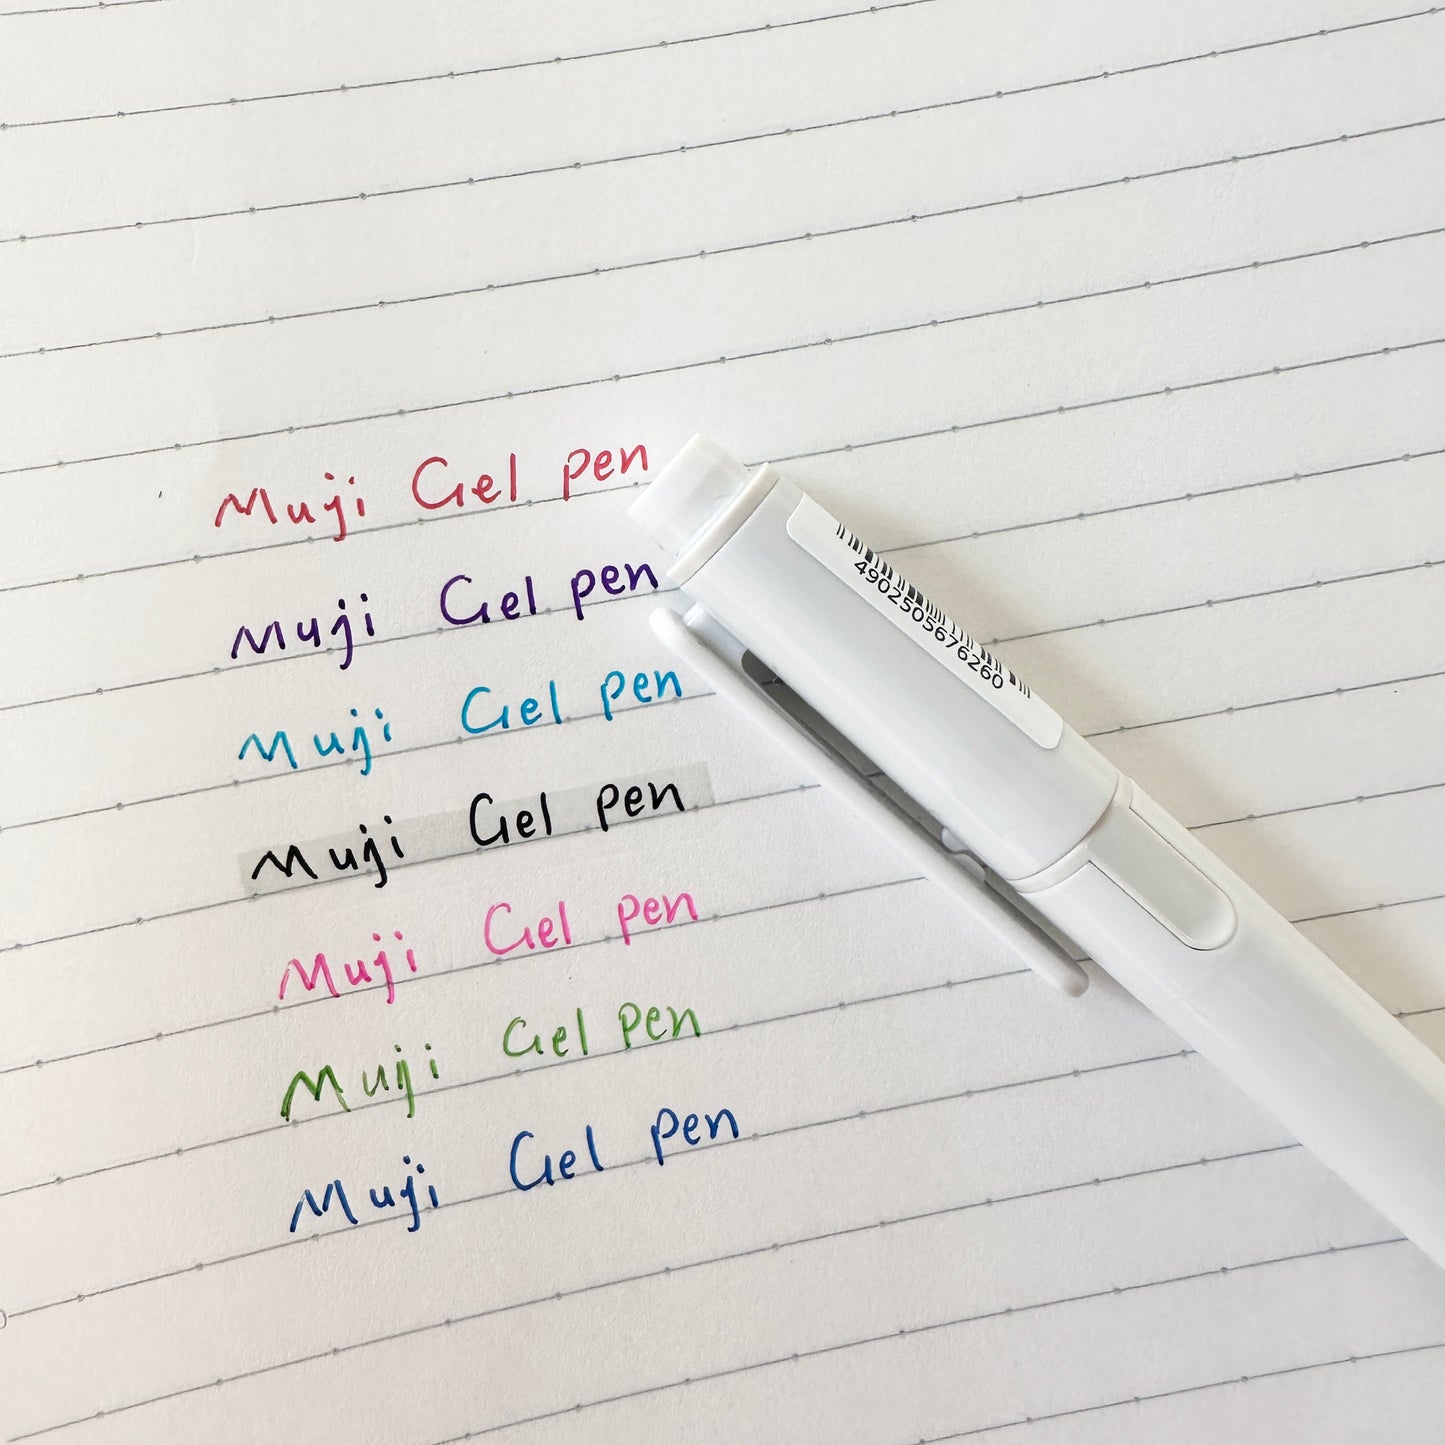 Muji Gel pen
Muji Gel pen
Muji Gel pen
Muji Gel pen
Muji Gel pen
Muji Gel pen
Muji Gel pen
4902505676260